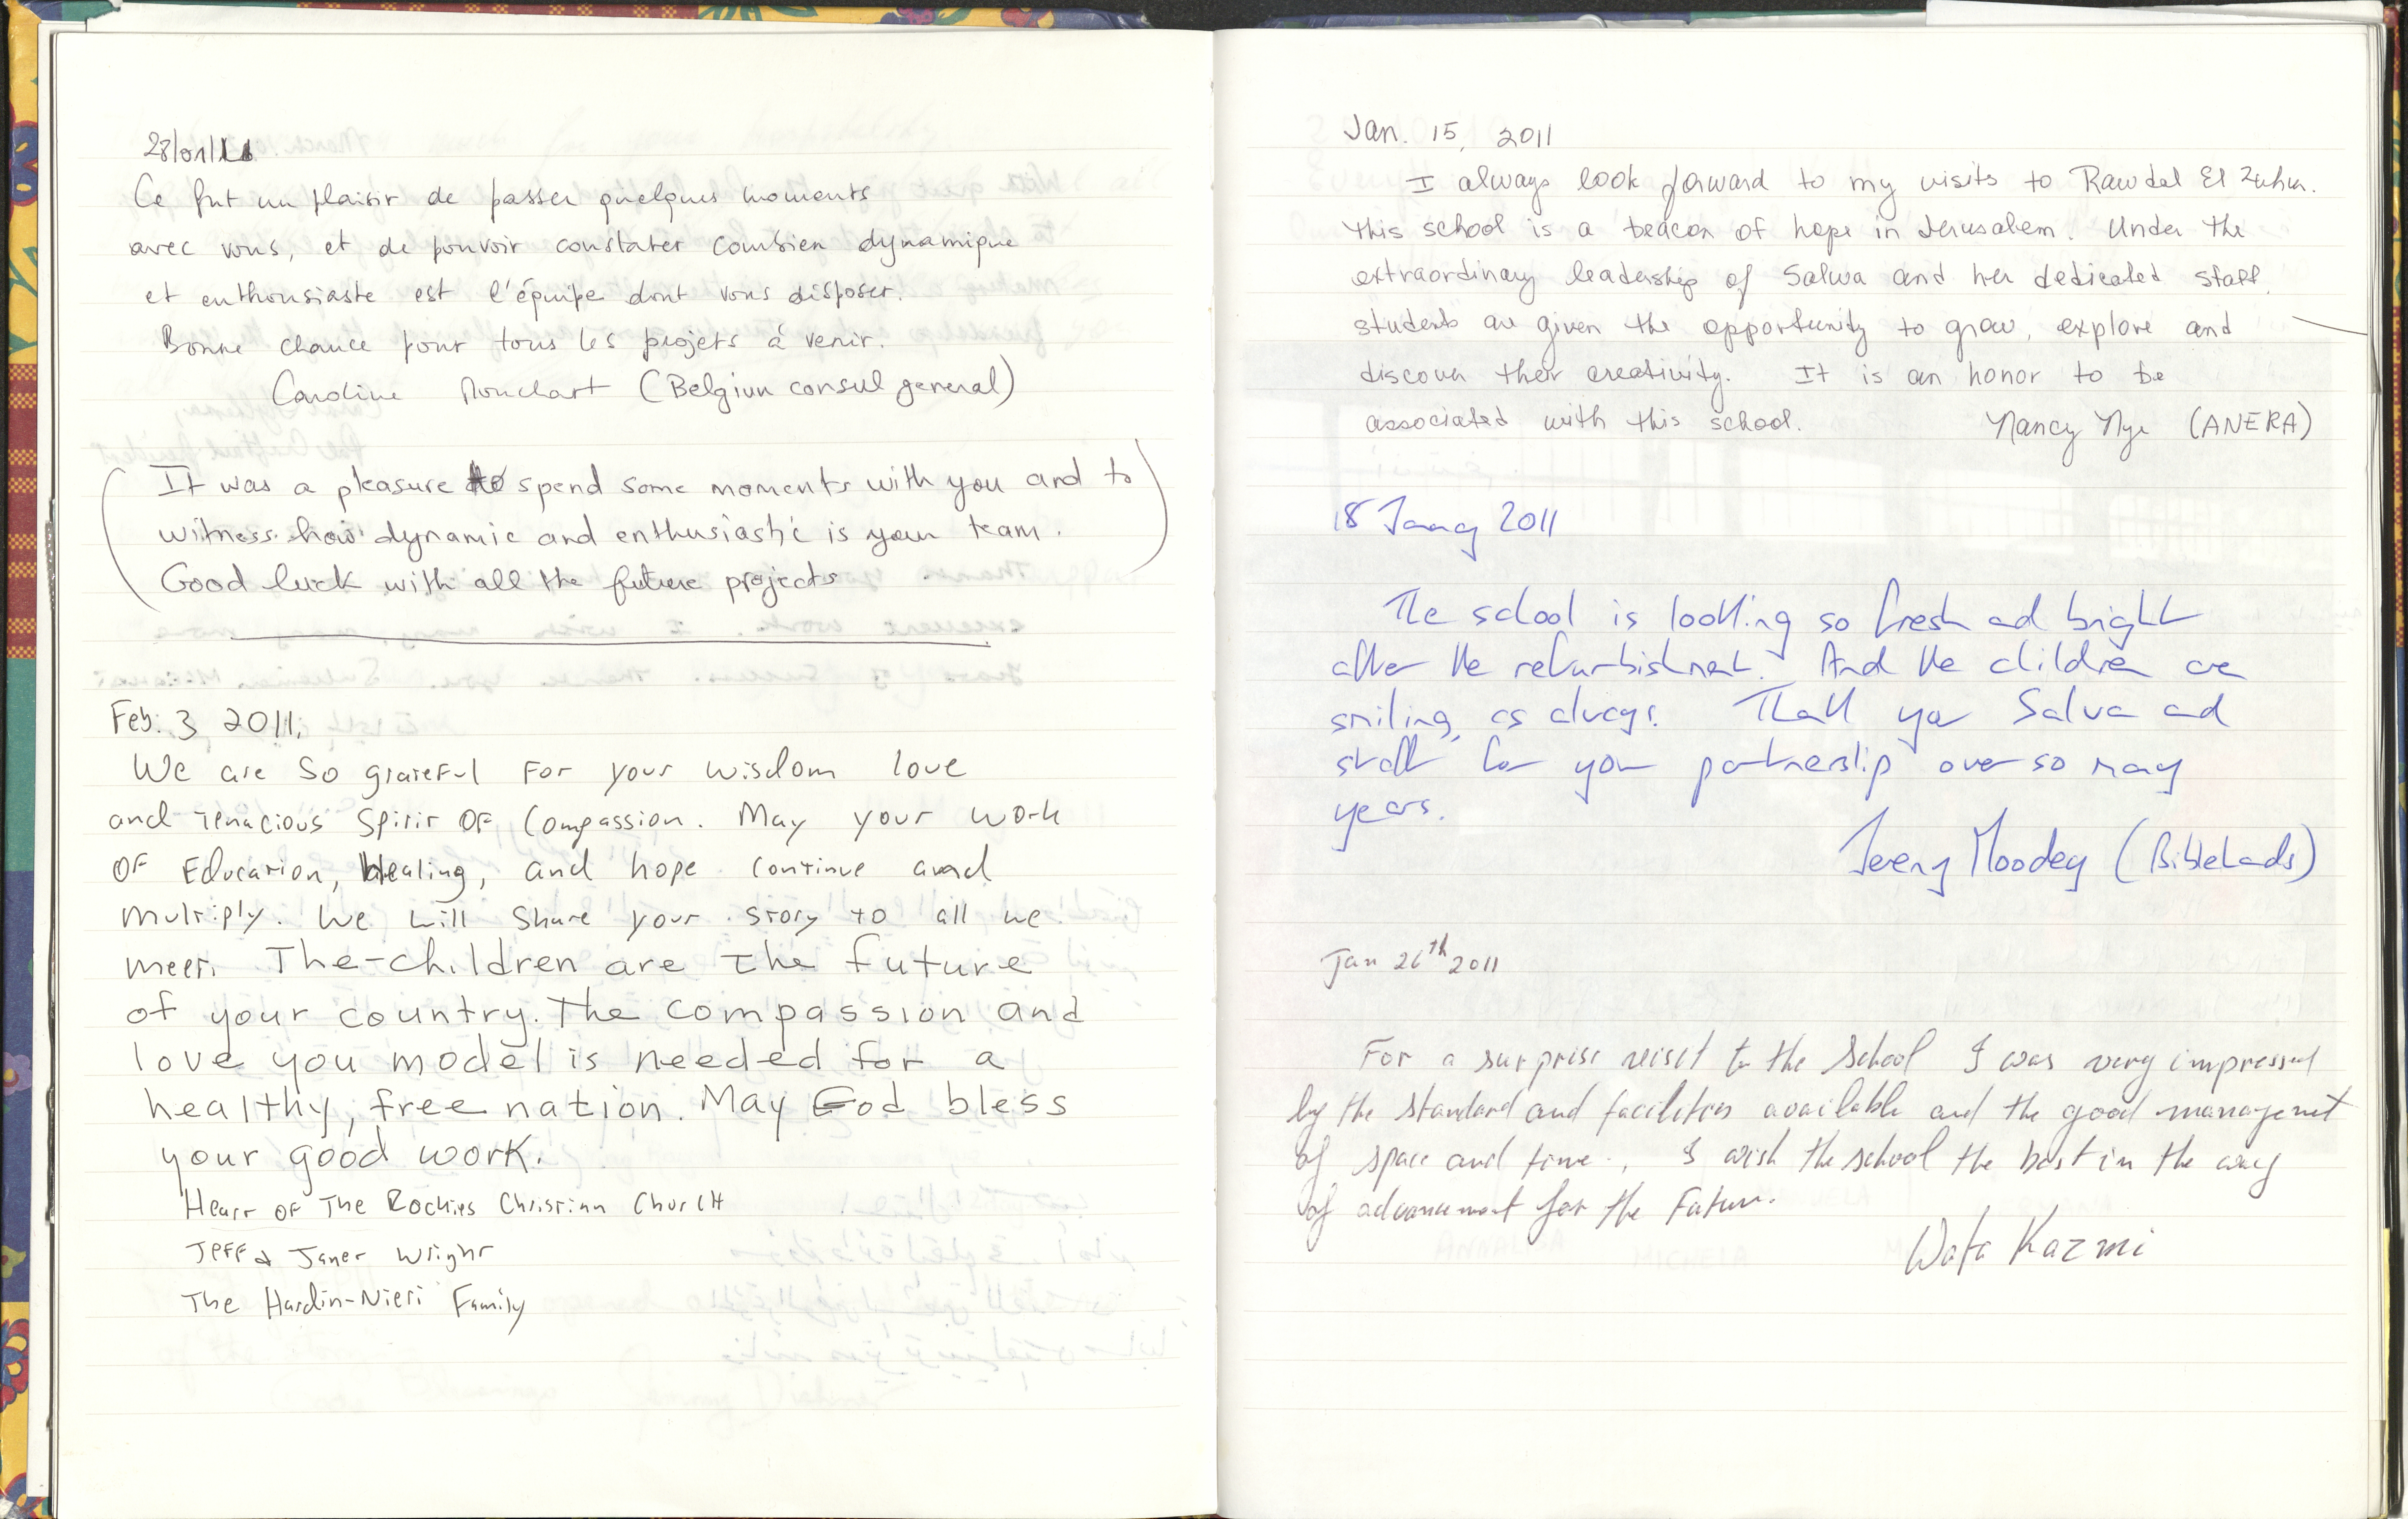 28/01/11
Ce fut un plaisir de passer quelques moments
avec vous, et de pouvoir constater combien dynamique
et enthousiaste est l'équipe dont vous disposer.
Bonne chance pour tous les projets à venir.
Caroline (Belgium consul general)
(It was a pleasure to spend some moments with you and to
witness how dynamic and enthusiastic is your team.
Good luck with all the future projects)
Feb. 3 2011.
We are so grateful for your wisdom love
and tenacious spirit of compassion. May your work
of Education, Healing, and hope continue and
multiply. We will share your story to all we
meet. The children are the future
of your country. The compassion and
love you model is needed for a
healthy, free nation. May God bless
your good work.
Heart of The Rockies Christian Church
Jeff & Janet Wright
The Hardin-Nieri Family
Jan. 15, 2011
I always look forward to my visits to Rawdat El Zuhur.
This school is a beacon of hope in Jerusalem. Under the
extraordinary leadership of Salwa and her dedicated staff,
students are given the opportunity to grow, explore and
discover their creativity. It is an honor to be
associated with this school. Nancy Nye (ANERA)
18 January 2011
The school is looking so fresh and bright
after the refurbishment. And the children are
smiling, as always. Thank you Salwa and
staff for your partnership over so many
years.
Jeremy Moodey (BibleLands)
Jan 26th 2011
For a surprise visit to the School I was very impressed
by the standard and facilities available and the good management
of space and time. I wish the school the best in the way
of advancement for the Future.
Wafa Kazmi